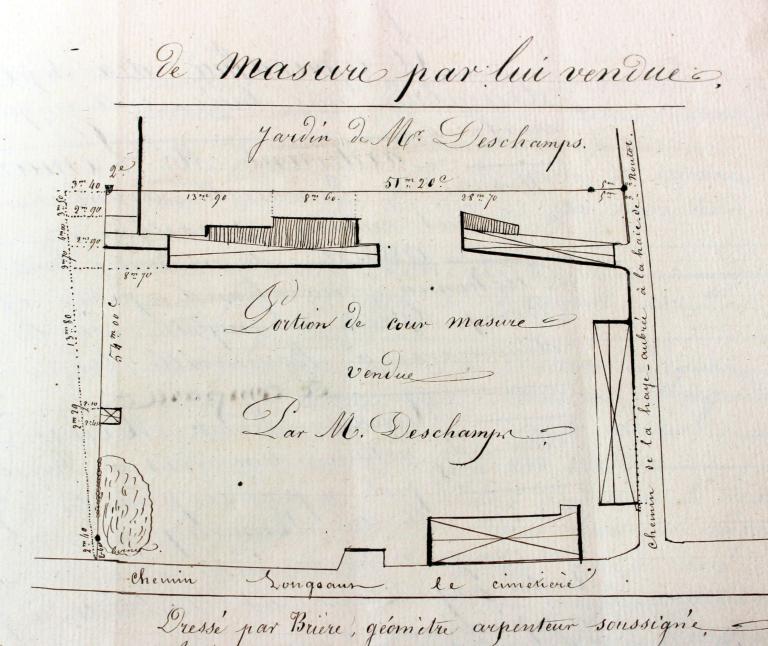 de masure par lui vendue.
Jardin de Mr. Deschamps.
51m 20c
3m 40
13m 90
8m 60
28m 70
2m 90
2m 90
8m 70
Portion de cour masure
vendue
Par M. Deschamps
54m 00c
13m 80
2m 20
2m 40
Chemin de la haye-aubrée à la haie-de-Routot.
Chemin Longeant le cimetière
Dressé par Brière, géomètre arpenteur soussigné,